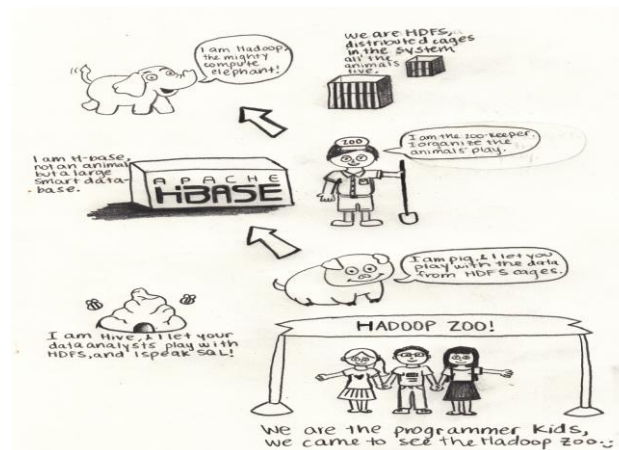 I am Hadoop,
the mighty
compute
elephant!
We are HDFS,
distributed cages
in the system
all the
animals
live.
I am H-base,
not an animal
but a large
smart data-
base.
APACHE
HBASE
ZOO
I am the zoo-keeper.
I organize the
animals' play.
I am pig, & I let you
play with the data
from HDFS cages.
I am Hive, & I let your
data analysts play with
HDFS, and I speak SQL!
HADOOP ZOO!
We are the programmer kids,
we came to see the Hadoop Zoo :)